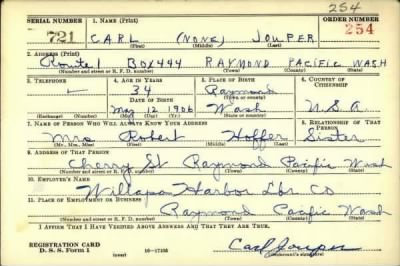 254
SERIAL NUMBER 1. NAME (Print) ORDER NUMBER
721 CARL (NONE) JOUPER 254
(First) (Middle) (Last)
2. ADDRESS (Print)
Route 1 BOX 444 RAYMOND PACIFIC WASH
(Number and street or R. F. D. number) (Town) (County) (State)
3. TELEPHONE 4. AGE IN YEARS 5. PLACE OF BIRTH 6. COUNTRY OF CITIZENSHIP
34 Raymond
DATE OF BIRTH (Town or county)
May 12 1906 Wash U.S.A.
(Exchange) (Number) (Mo.) (Day) (Yr.) (State or country)
7. NAME OF PERSON WHO WILL ALWAYS KNOW YOUR ADDRESS 8. RELATIONSHIP OF THAT PERSON
Mrs Robert Hoffer Sister
(Mr., Mrs., Miss) (First) (Middle) (Last)
9. ADDRESS OF THAT PERSON
Cherry St Raymond Pacific Wash
(Number and street or R. F. D. number) (Town) (County) (State)
10. EMPLOYER'S NAME
Willapa Harbor Lbr Co
11. PLACE OF EMPLOYMENT OR BUSINESS
Raymond Pacific Wash
(Number and street or R. F. D. number) (Town) (County) (State)
I AFFIRM THAT I HAVE VERIFIED ABOVE ANSWERS AND THAT THEY ARE TRUE.
REGISTRATION CARD
D. S. S. Form 1 (over) 16—17105 Carl Jouper
(Registrant's signature)